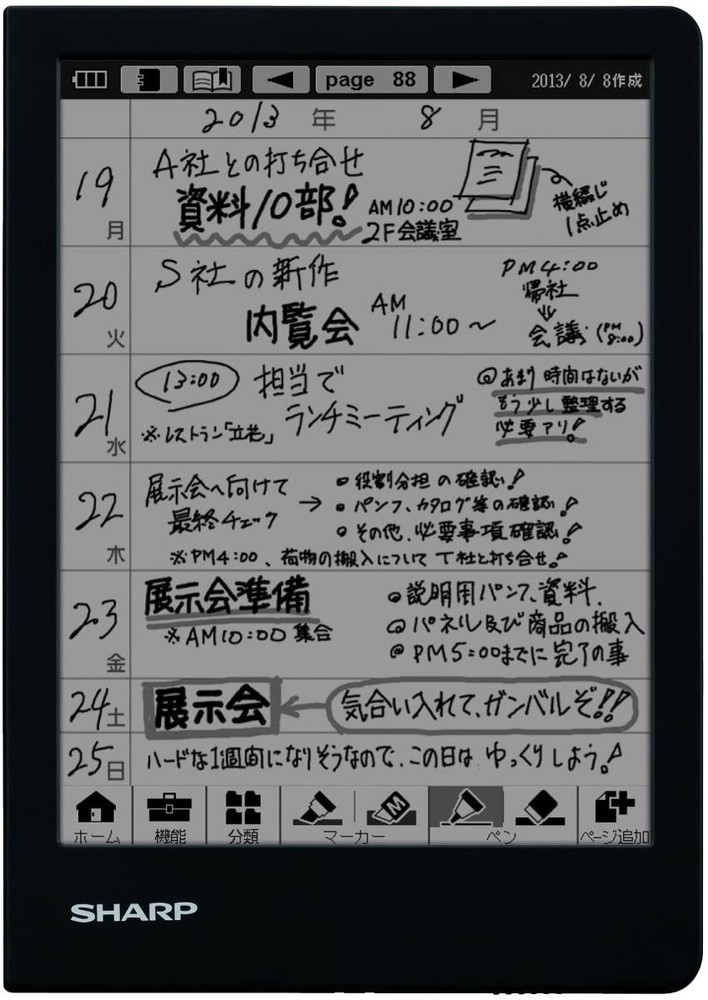 page 88
2013/ 8/ 8作成
2013 年 8 月
19
月
A社との打ち合せ
資料10部!
AM10:00
2F会議室
横綴じ
1点止め
20
火
S社の新作
内覧会
AM
11:00〜
PM4:00
帰社
⇓
会議(PM 8:00)
21
水
13:00 担当で
ランチミーティング
※レストラン「立花」
◎あまり時間はないが
もう少し整理する
必要アリ!
22
木
展示会へ向けて
最終チェック
→
・役割分担の確認!
・パンフ、カタログ等の確認!
・その他、必要事項確認!
※PM4:00、荷物の搬入について T社と打ち合せ!
23
金
展示会準備
※AM10:00 集合
◎説明用パンフ、資料、
◎パネル及び商品の搬入
◎PM5:00までに完了の事
24
土
展示会
←
気合い入れて、ガンバルぞ!!
25
日
ハードな1週間になりそうなので、この日は ゆっくりしよう!
ホーム
機能
分類
マーカー
ペン
ページ追加
SHARP